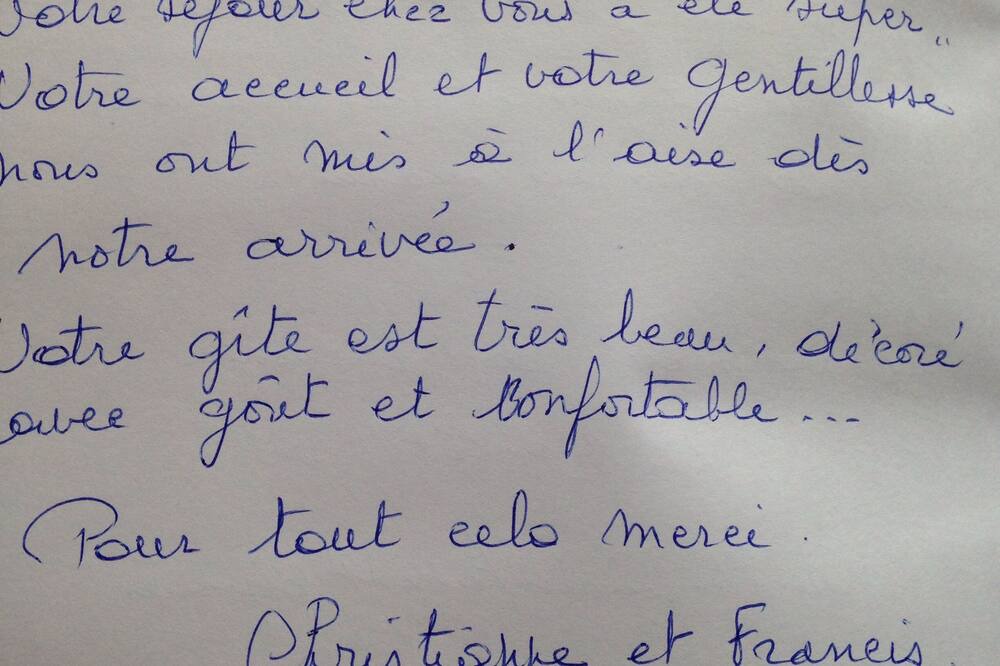 Notre séjour chez vous a été super..
Votre accueil et votre gentillesse
nous ont mis à l'aise dès
notre arrivée.
Votre gîte est très beau, décoré
avec goût et confortable...
Pour tout cela merci.
Christophe et Francis